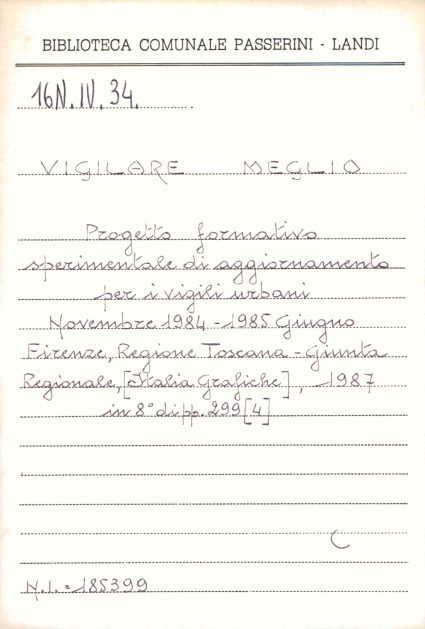 BIBLIOTECA COMUNALE PASSERINI - LANDI
16N.IV.34.
VIGILARE MEGLIO
Progetto formativo
sperimentale di aggiornamento
per i vigili urbani
Novembre 1984 - 1985 Giugno
Firenze, Regione Toscana - Giunta
Regionale, [Italia Grafiche], 1987
in 8° di pp. 299 [4]
C
N.I. = 185399